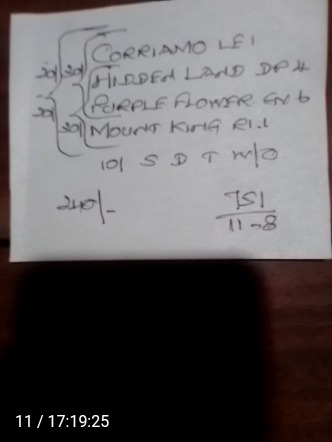 20/ 20/ CORRIAMO LE1
HIDDEN LAND DP4
20/ PURPLE FLOWER EN6
20/ MOUNT KING R1.1
10/ S D T W/O
240/-
TS1
11-8
11 / 17:19:25